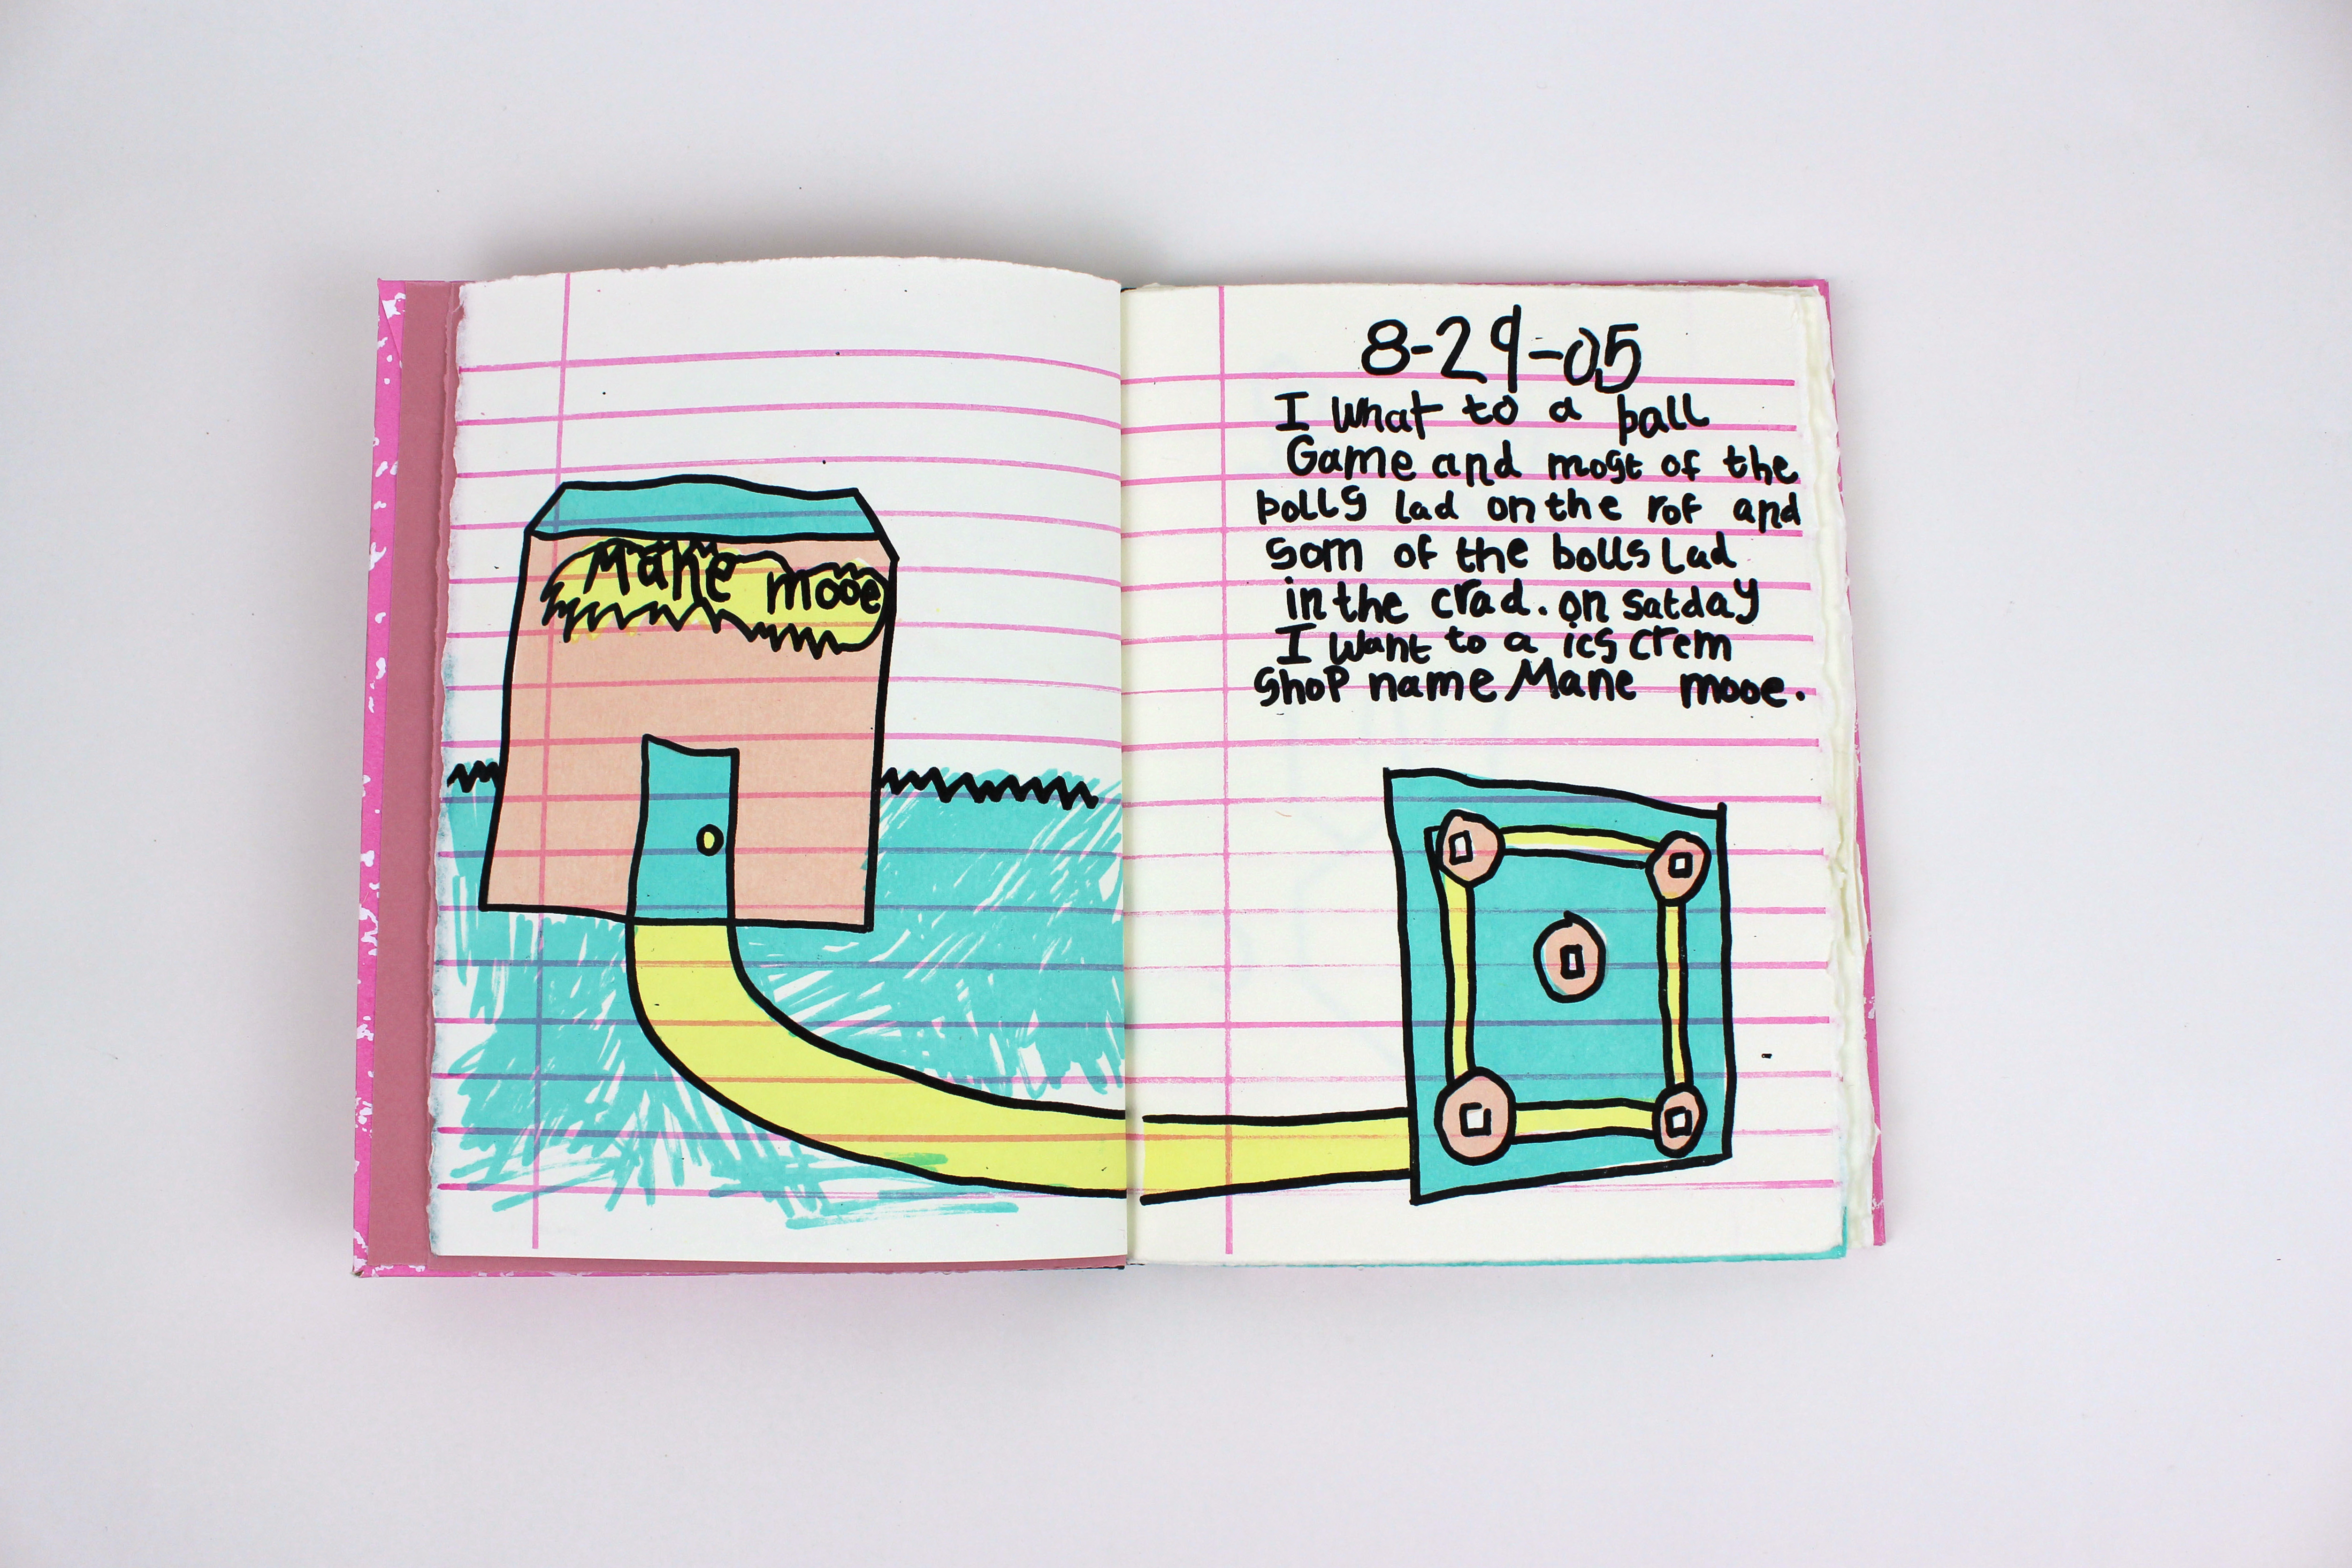 Mane mooe
8-29-05
I what to a ball
Game and most of the
bolls lad on the rof and
som of the bolls Lad
in the crad. on satday
I want to a ics crem
shop name Mane mooe.